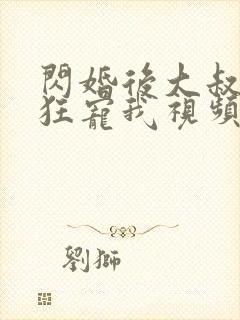 閃婚後大叔
狂寵我視頻
劉獅